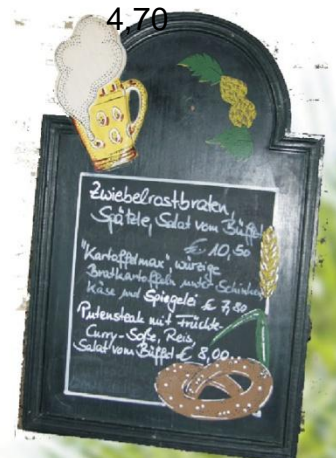 4,70
Zwiebelrostbraten,
Spätzle, Salat vom Büffet
€ 10,50
"Kartoffelmax", würzige
Bratkartoffeln unter Schinken
Käse und Spiegelei € 7,80
Putensteak mit Früchte-
Curry-Soße, Reis,
Salat vom Büffet € 8,00